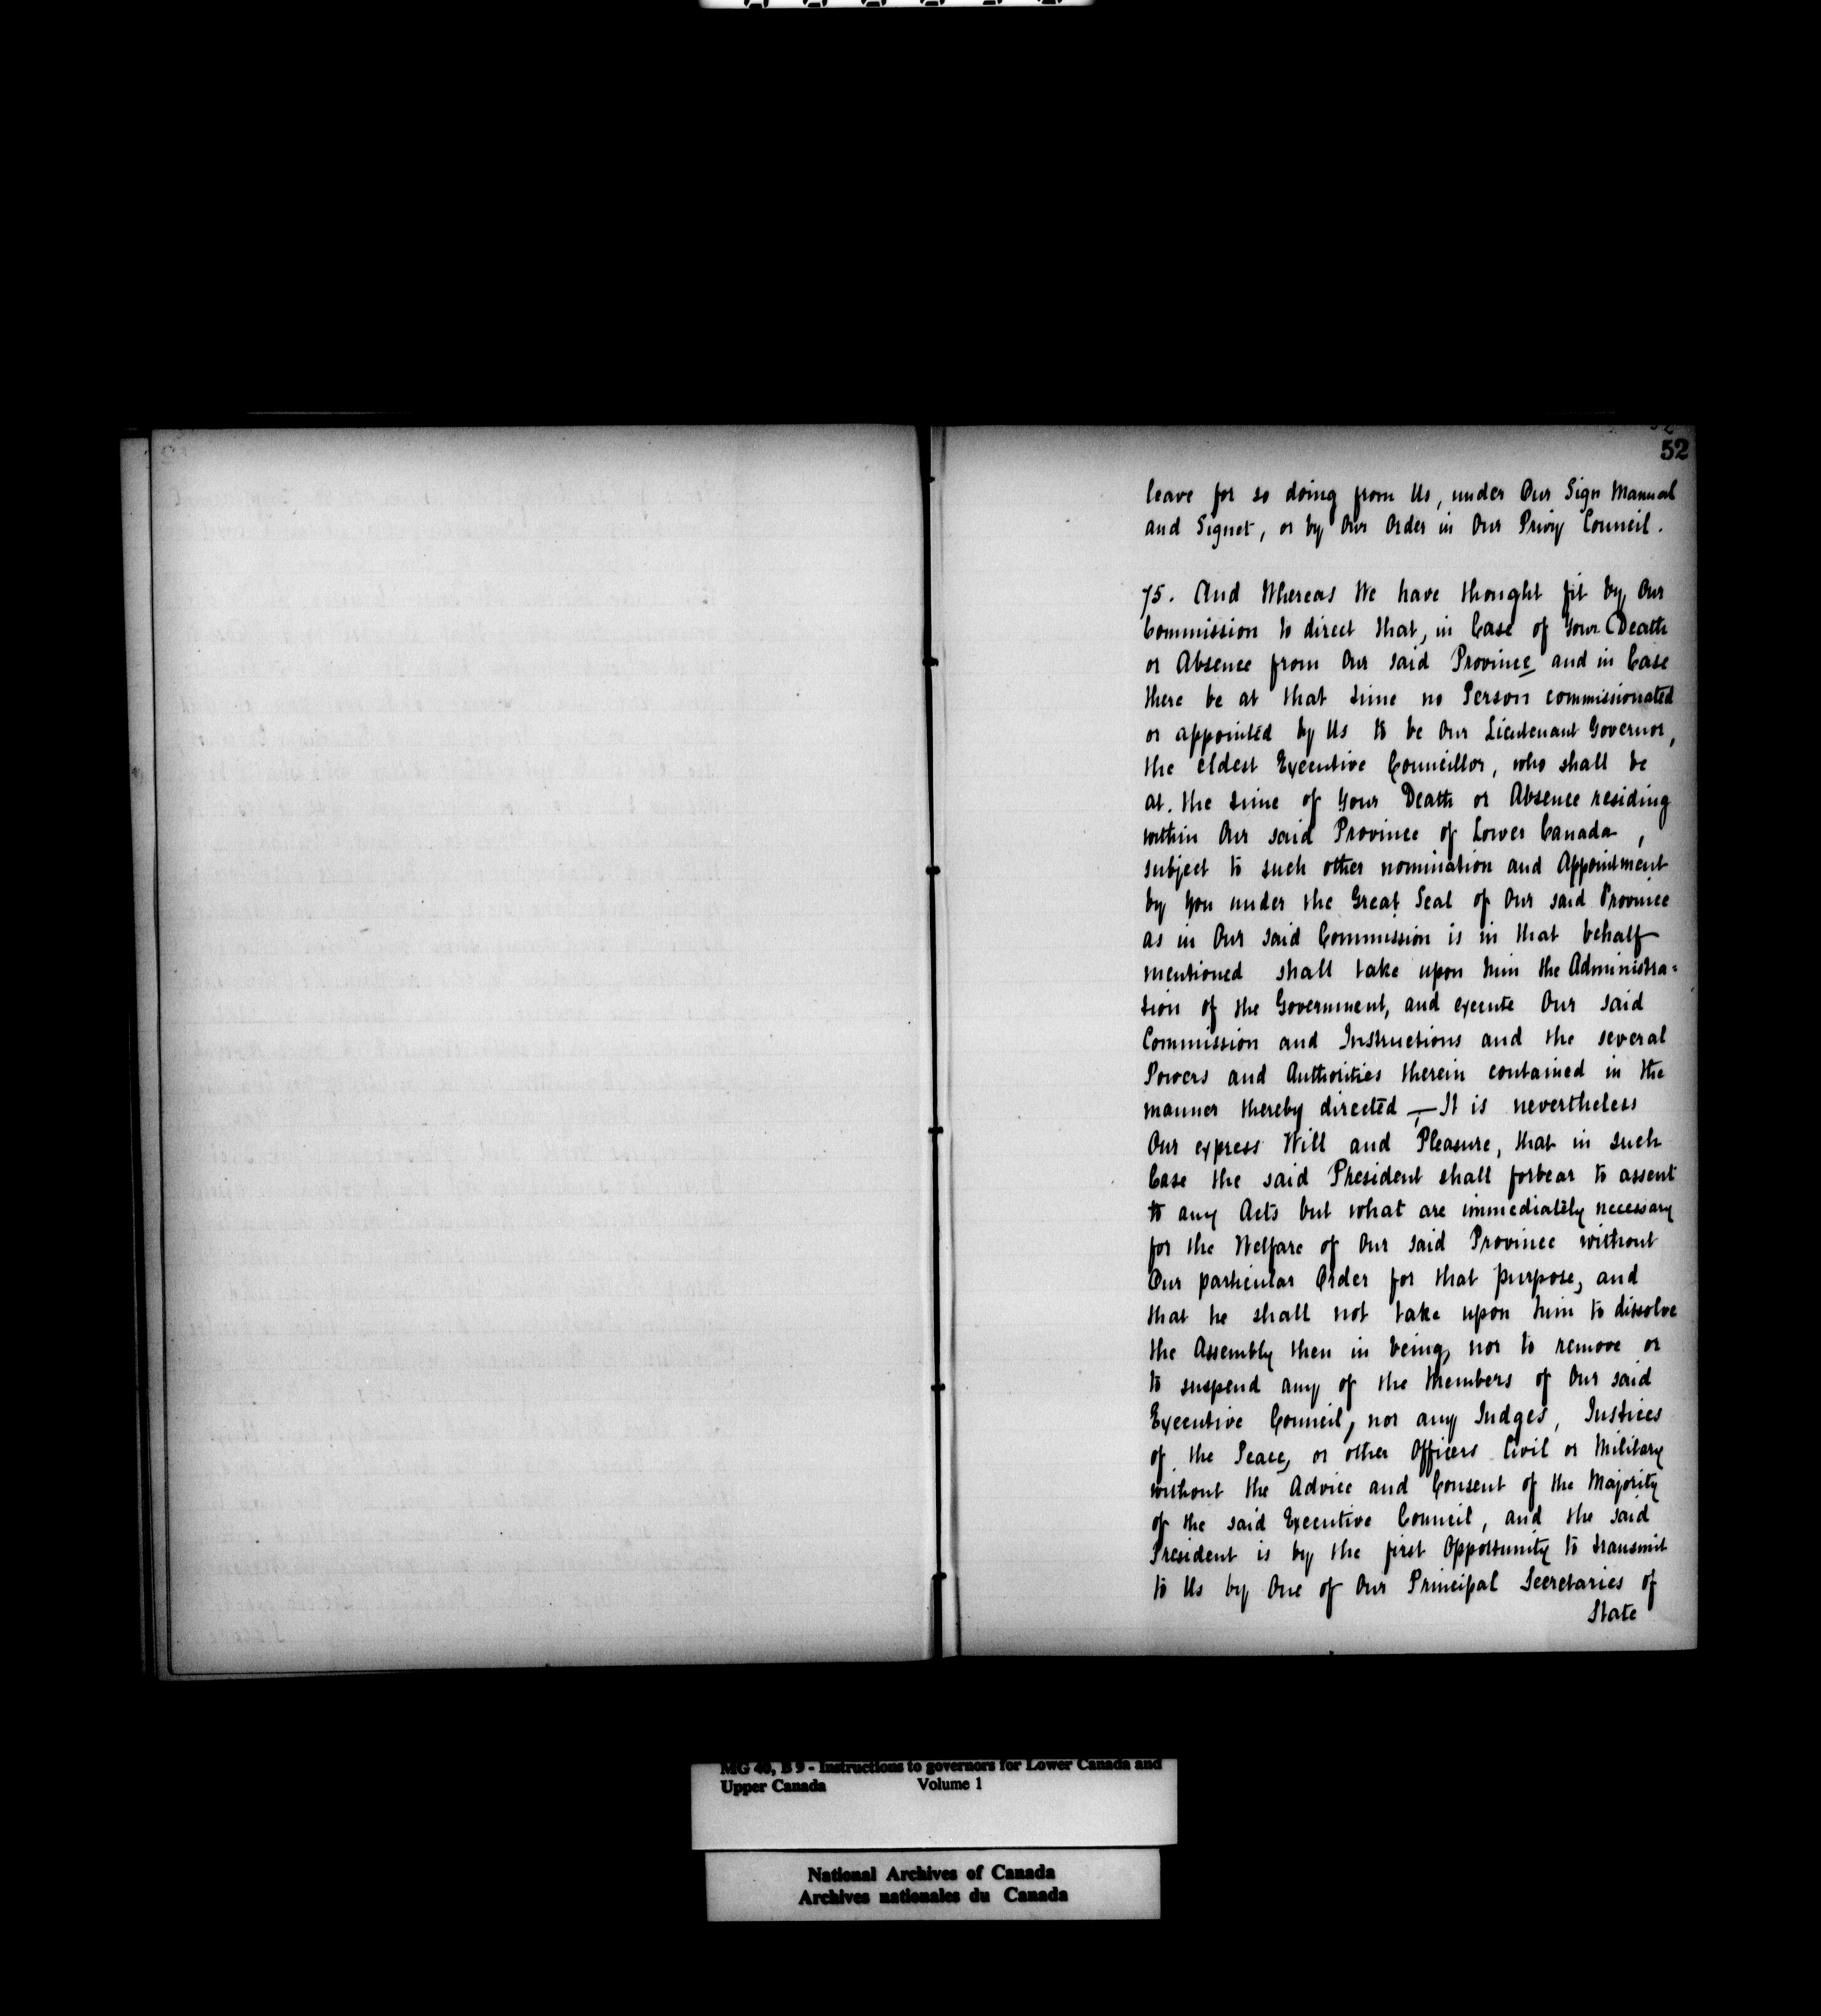 52
leave for so doing from Us, under Our Sign Manual
and Signet, or by Our Order in Our Privy Council.
75. And Whereas We have thought fit by Our
Commission to direct that, in Case of Your Death
or Absence from Our said Province and in Case
there be at that time no Person commissionated
or appointed by Us to be Our Lieutenant Governor,
the eldest Executive Councillor, who shall be
at the time of Your Death or Absence residing
within Our said Province of Lower Canada,
subject to such other nomination and Appointment
by You under the Great Seal of Our said Province
as in Our said Commission is in that behalf
mentioned shall take upon him the Administra=
tion of the Government, and execute Our said
Commission and Instructions and the several
Powers and Authorities therein contained in the
manner thereby directed, — It is nevertheless
Our express Will and Pleasure, that in such
Case the said President shall forbear to assent
to any Acts but what are immediately necessary
for the Welfare of Our said Province without
Our particular Order for that purpose, and
that he shall not take upon him to dissolve
the Assembly then in being, nor to remove or
to suspend any of the Members of Our said
Executive Council, nor any Judges, Justices
of the Peace, or other Officers Civil or Military
without the Advice and Consent of the Majority
of the said Executive Council, and the said
President is by the first Opportunity to transmit
to Us by One of Our Principal Secretaries of
State
MG 40, B 9 - Instructions to governors for Lower Canada and
Upper Canada Volume 1
National Archives of Canada
Archives nationales du Canada